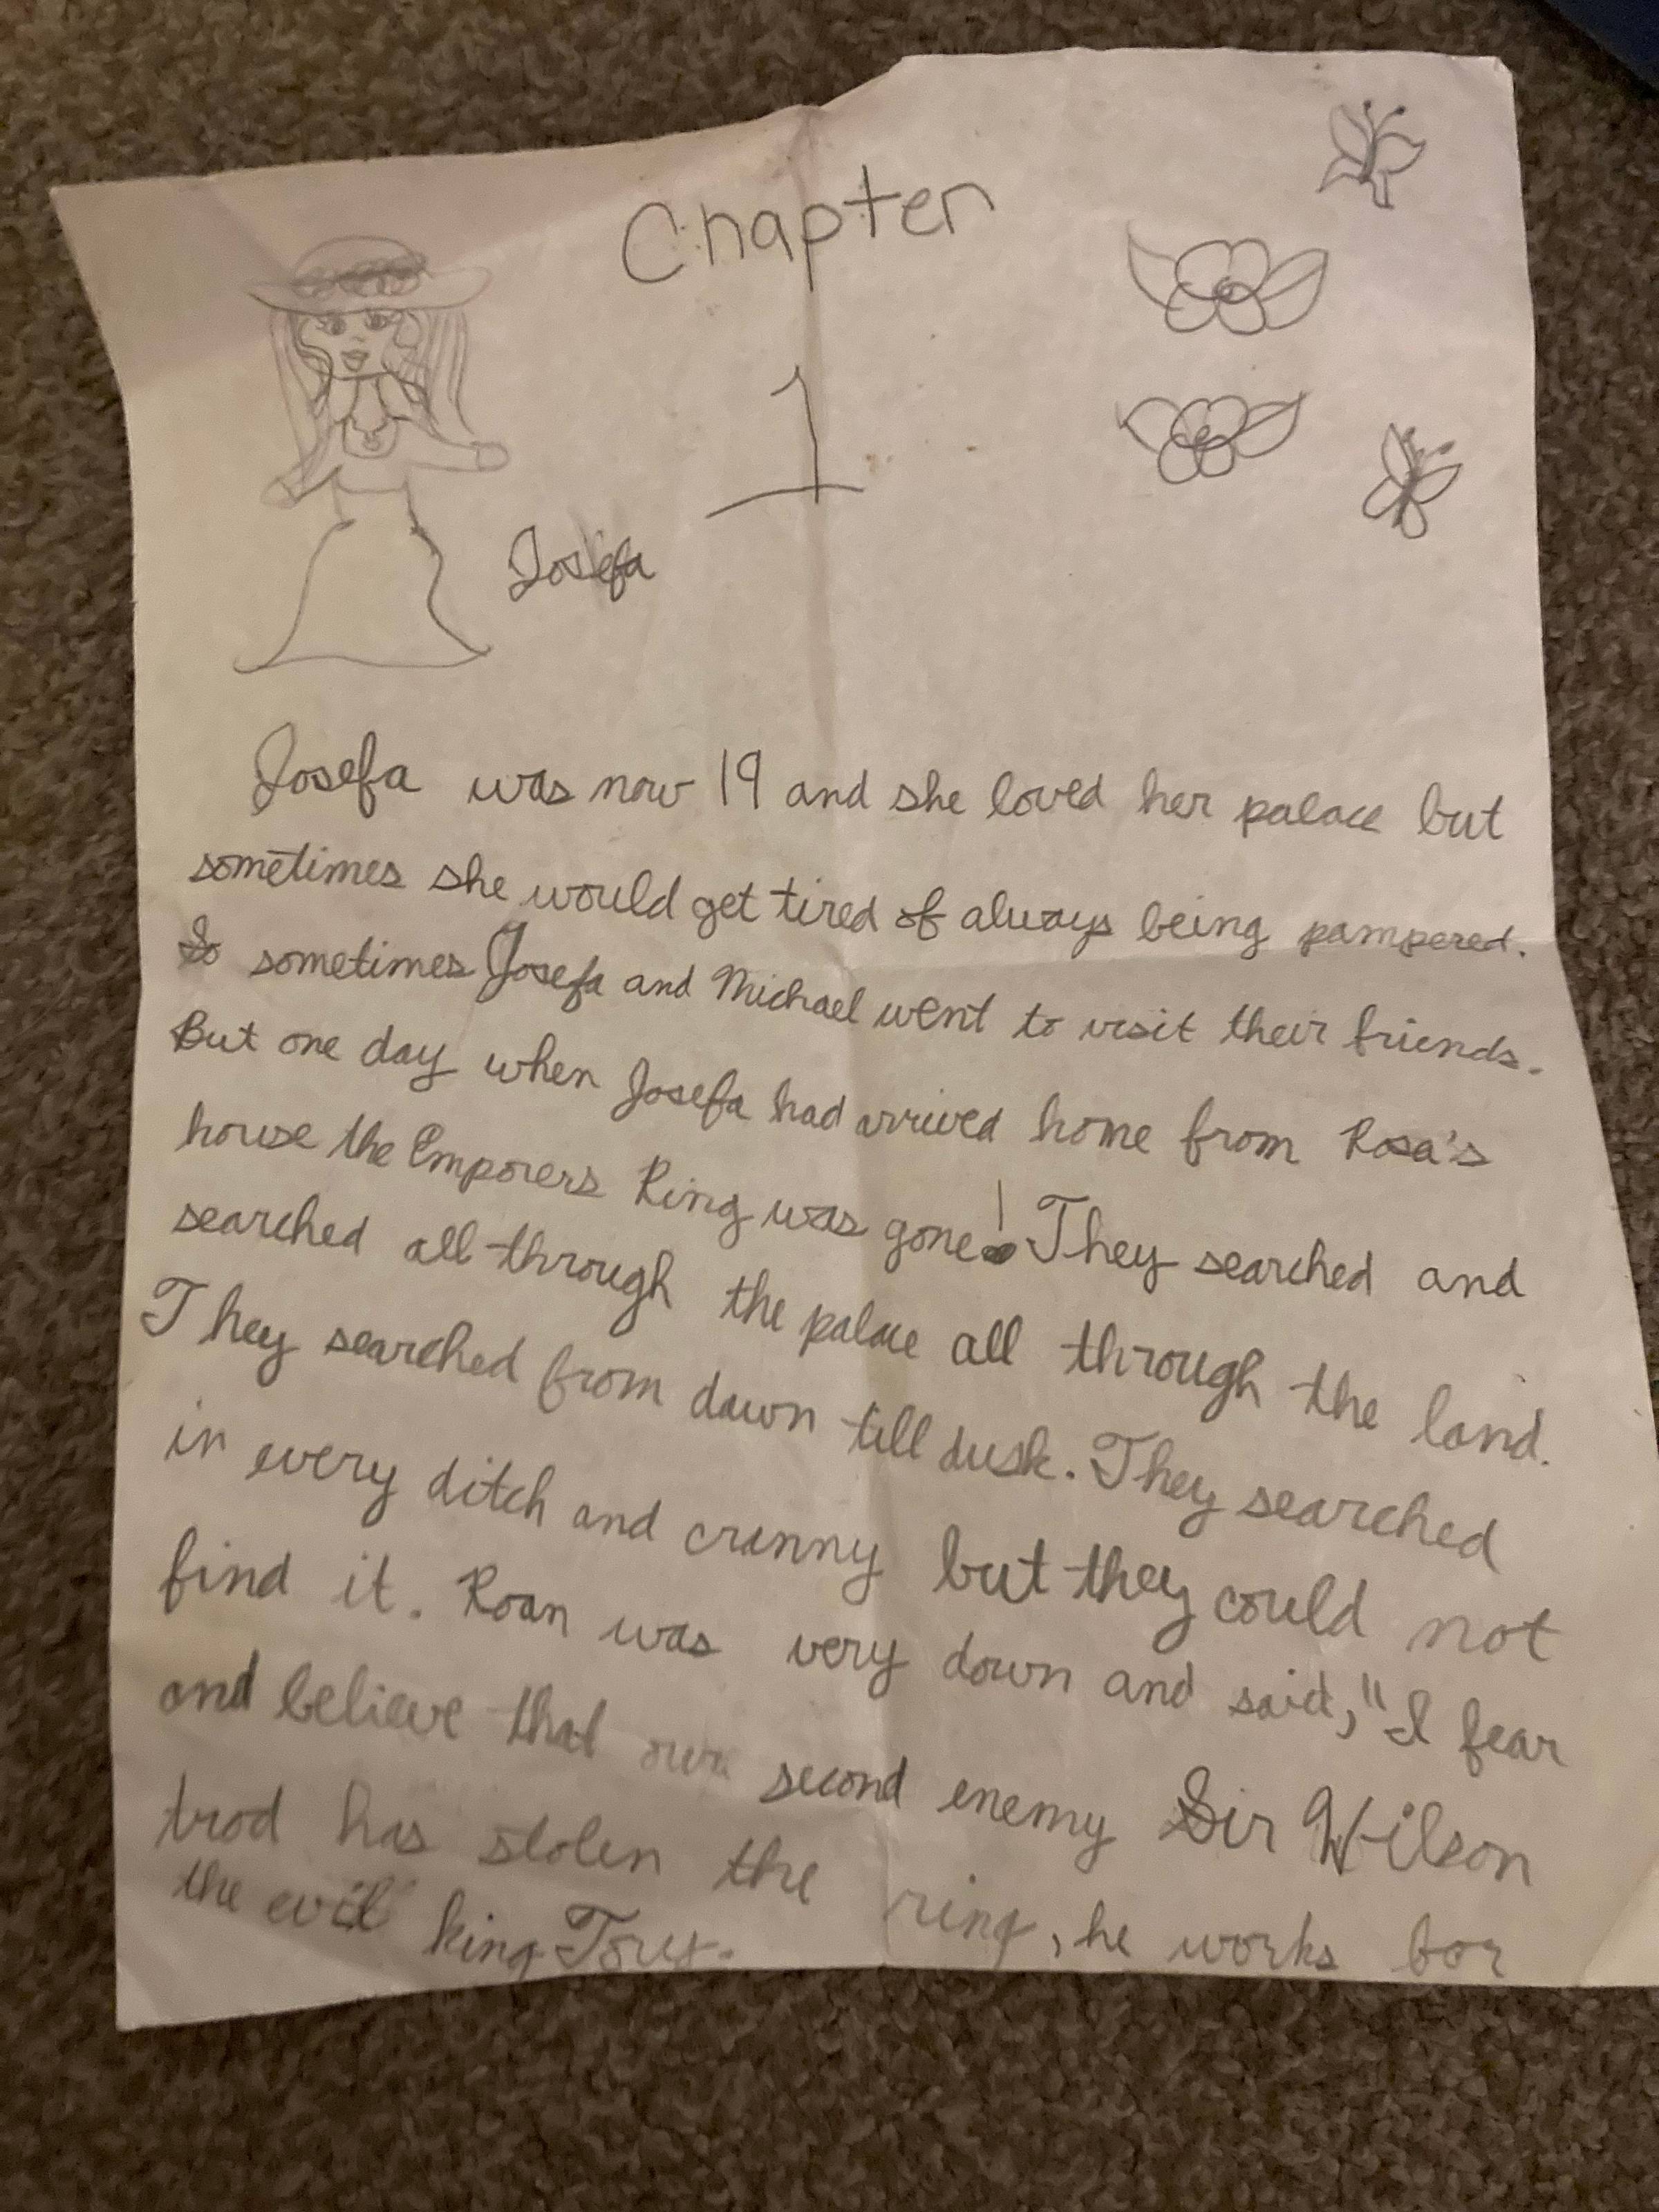 Chapter
1
Josefa
Josefa was now 19 and she loved her palace but
sometimes she would get tired of always being pampered.
So sometimes Josefa and Michael went to visit their friends.
But one day when Josefa had arrived home from Rosa's
house the Emporers Ring was gone! They searched and
searched all through the palace all through the land.
They searched from dawn till dusk. They searched
in every ditch and cranny but they could not
find it. Roan was very down and said, "I fear
and believe that our second enemy Sir Wilson
trod has stolen the ring, he works for
the evil king